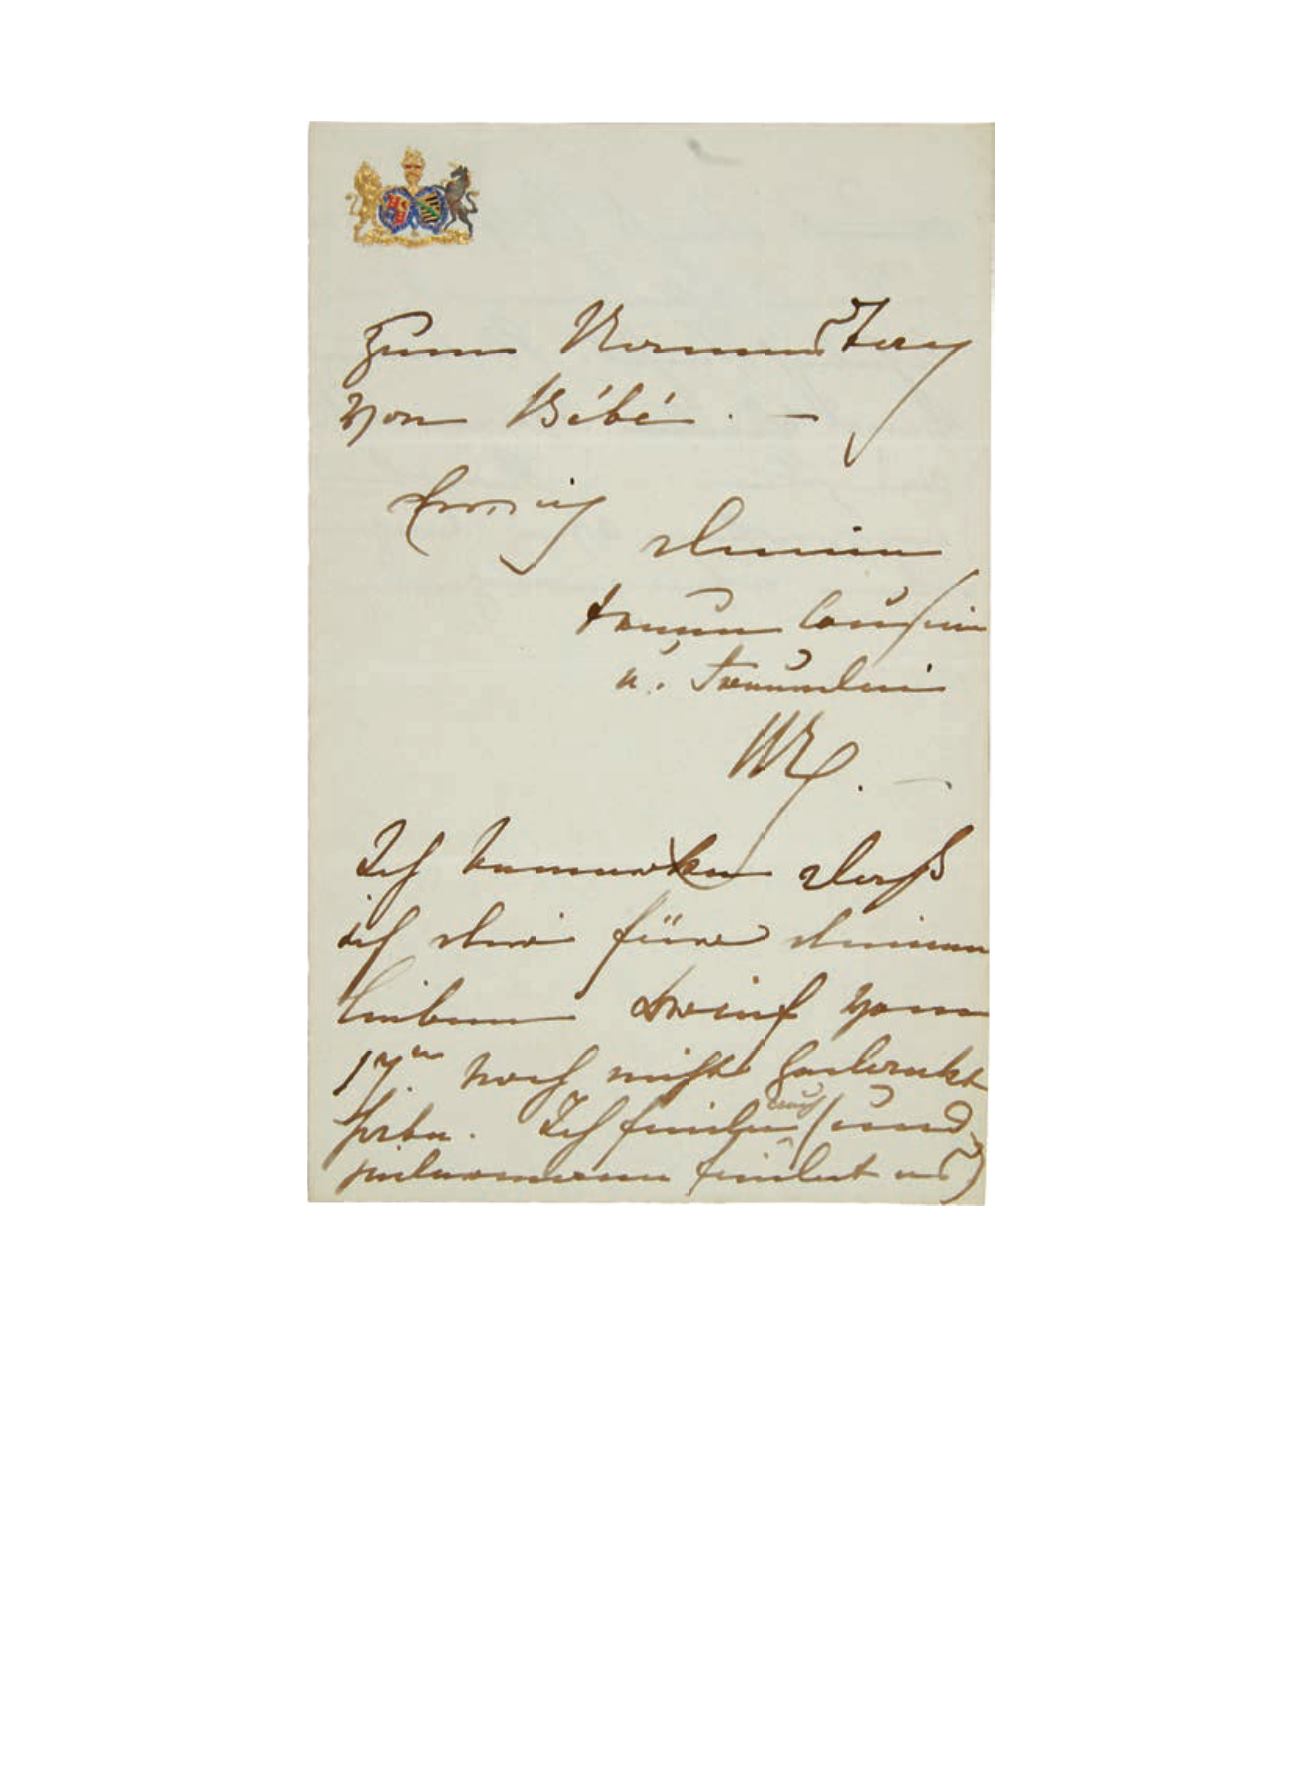 Zum Namenstag
von Bébé. —
Ewig Deine
treue Cousine
u. Freundin
Ich bemerke daß
ich dir für deinen
lieben Brief vom
17ten noch nicht gedankt
habe. Ich finde auch (und
jedermann findet es)